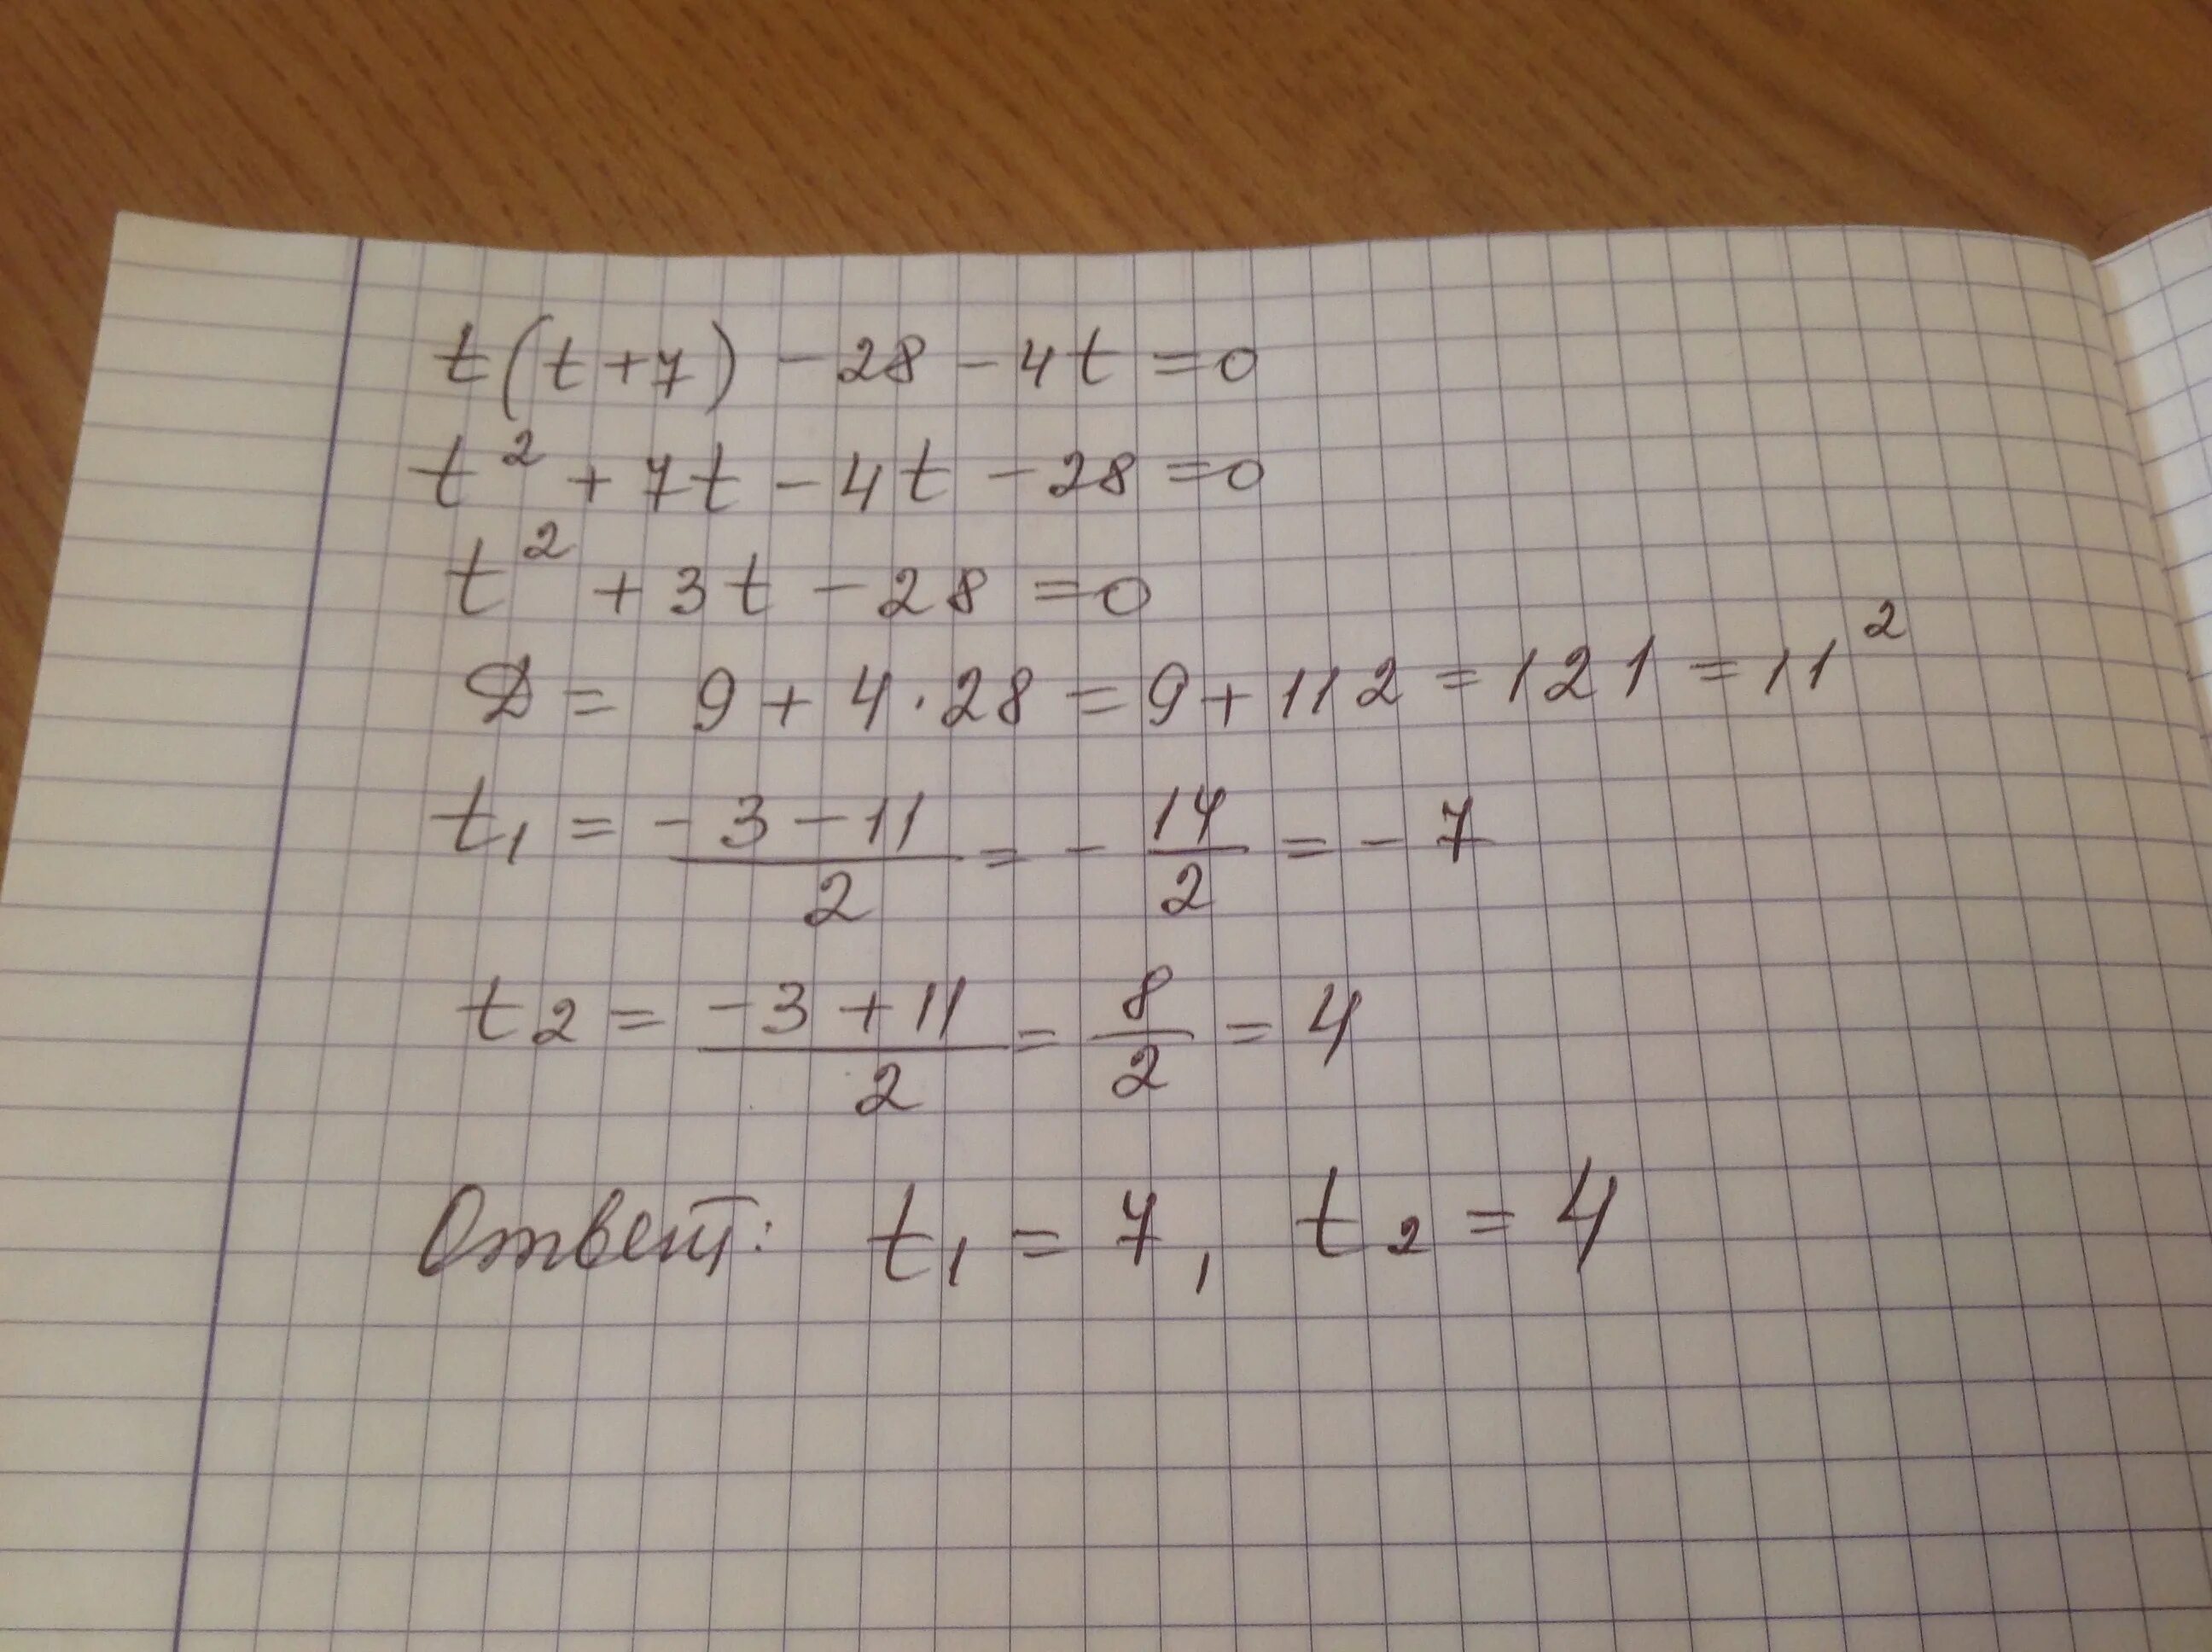 t(t+7) - 28 - 4t = 0
t² + 7t - 4t - 28 = 0
t² + 3t - 28 = 0
D = 9 + 4·28 = 9 + 112 = 121 = 11²
t₁ = (-3-11)/2 = -14/2 = -7
t₂ = (-3+11)/2 = 8/2 = 4
Ответ: t₁ = 7, t₂ = 4